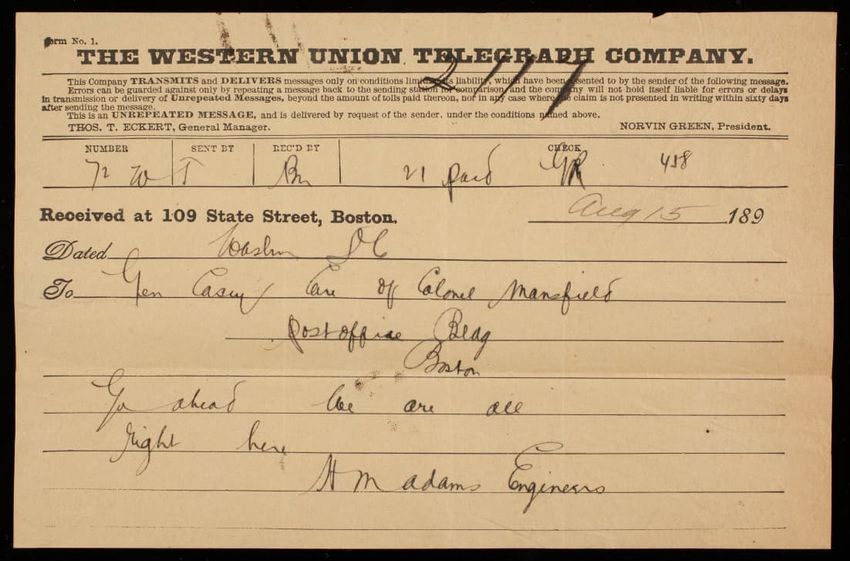 Form No. 1.
THE WESTERN UNION TELEGRAPH COMPANY.
2117
This Company TRANSMITS and DELIVERS messages only on conditions limiting its liability, which have been assented to by the sender of the following message.
Errors can be guarded against only by repeating a message back to the sending station for comparison, and the company will not hold itself liable for errors or delays
in transmission or delivery of Unrepeated Messages, beyond the amount of tolls paid thereon, nor in any case where the claim is not presented in writing within sixty days
after sending the message.
This is an UNREPEATED MESSAGE, and is delivered by request of the sender, under the conditions named above.
THOS. T. ECKERT, General Manager. NORVIN GREEN, President.
NUMBER SENT BY REC'D BY CHECK
72 W T Bn 21 paid GR 458
Received at 109 State Street, Boston. Aug 15 189
Dated Washn DC
To Gen Casey Care of Colonel Mansfield
Postoffice Bldg
Boston
Go ahead We are all
right here
H M Adams Engineers